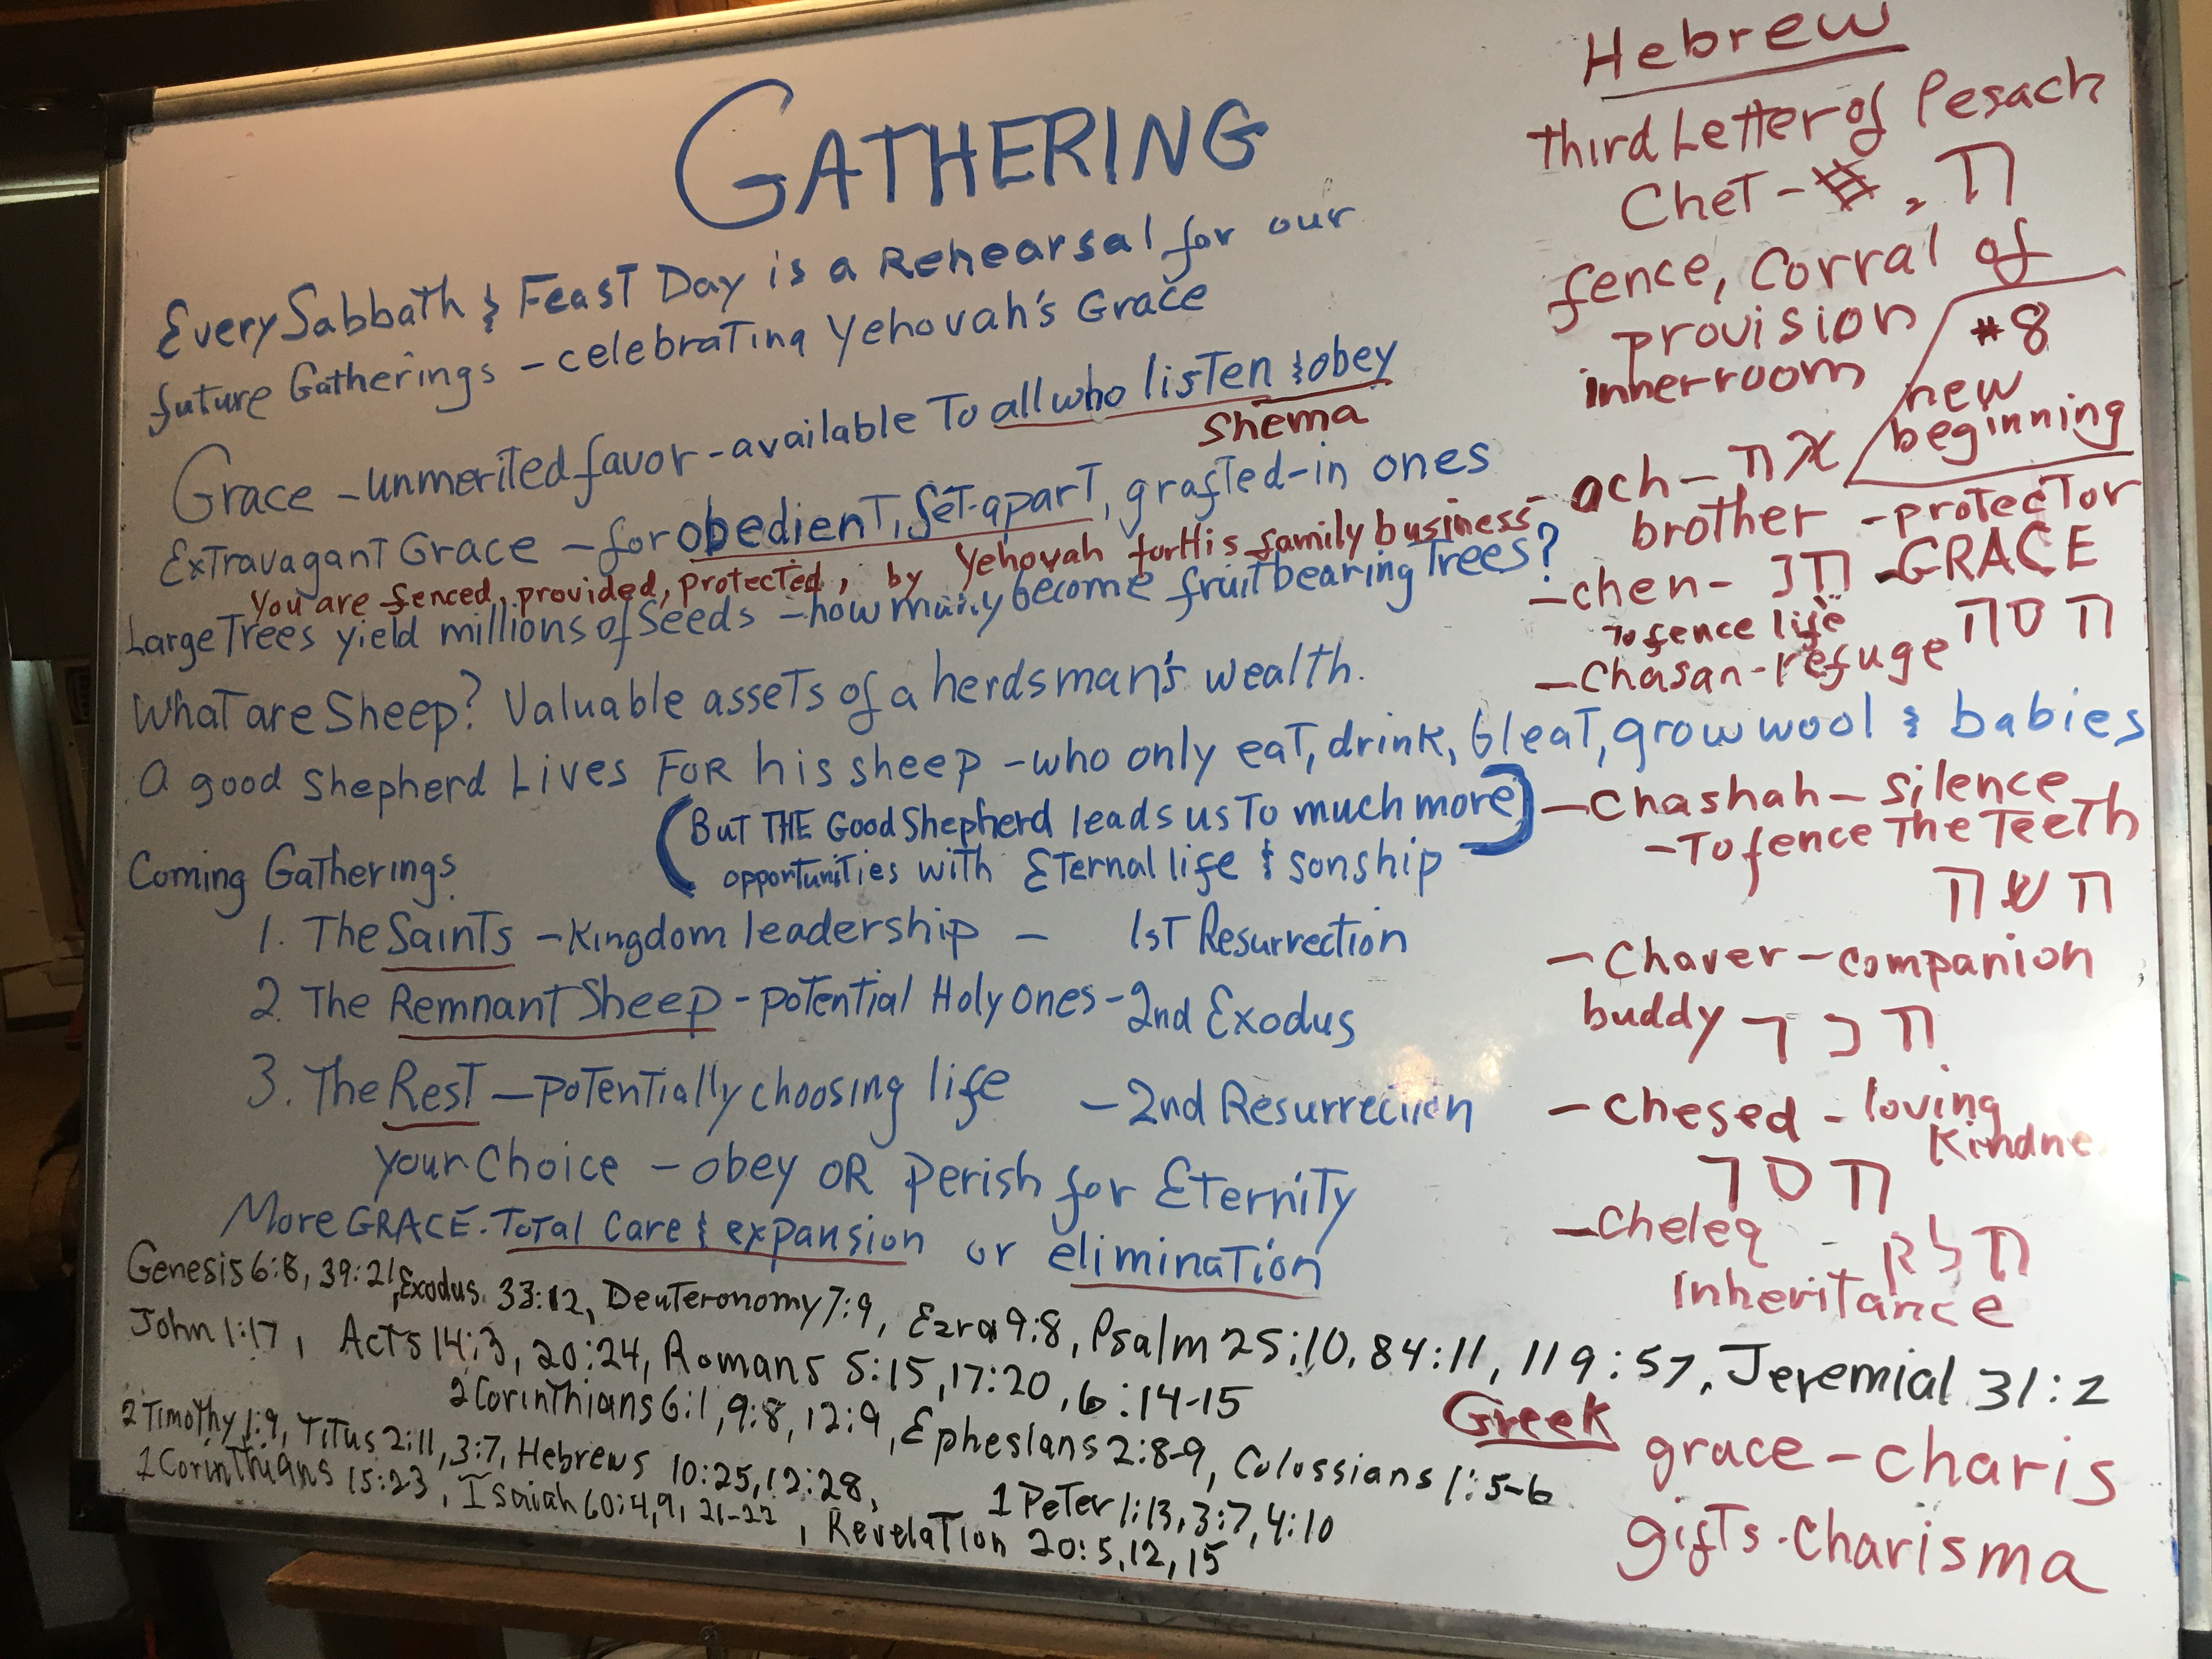 GATHERING
Every Sabbath & Feast Day is a Rehearsal for our
future Gatherings - celebrating Yehovah's Grace
Grace - unmerited favor - available To all who listen & obey
Shema
Extravagant Grace - for obedient, set-apart, grafted-in ones
You are fenced, provided, protected, by Yehovah for His family business -
Large Trees yield millions of Seeds - how many become fruit bearing Trees?
What are Sheep? Valuable assets of a herdsman's wealth.
A good Shepherd Lives FOR his sheep - who only eat, drink, bleat, grow wool & babies
(But THE Good Shepherd leads us To much more
opportunities with Eternal life & sonship)
Coming Gatherings
1. The Saints - Kingdom leadership - 1st Resurrection
2. The Remnant Sheep - potential Holy Ones - 2nd Exodus
3. The Rest - potentially choosing life - 2nd Resurrection
your Choice - obey OR Perish for Eternity
More GRACE - Total Care & expansion or elimination
Genesis 6:8, 39:21, Exodus 33:12, Deuteronomy 7:9, Ezra 9:8, Psalm 25:10, 84:11, 119:57, Jeremial 31:2
John 1:17, Acts 14:3, 20:24, Romans 5:15, 17:20, 6:14-15
2 Corinthians 6:1, 9:8, 12:9, Ephesians 2:8-9, Colossians 1:5-6
2 Timothy 1:9, Titus 2:11, 3:7, Hebrews 10:25, 12:28, 1 Peter 1:13, 3:7, 4:10
1 Corinthians 15:23, Isaiah 60:4,9, 21-22, Revelation 20:5,12,15
Hebrew
Third Letter of Pesach
Chet - , ח
fence, Corral of
provision
inner room
#8
new
beginning
ach - אח
brother - protector
- chen - חנ - GRACE
To fence life
- Chasah - refuge חסה
- Chashah - silence
- To fence The Teeth
חשה
- Chaver - companion
buddy - חבר
- Chesed - loving
Kindne
חסד
- Cheleq - חלק
Inheritance
Greek
grace - charis
gifts - charisma